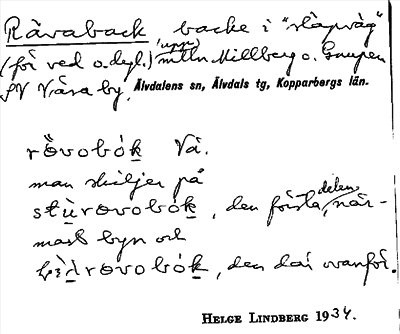 Rävaback backe i "släpväg"
(för ved o.dyl.) uppe mlln Millberg o. Gaupen
SV Våra by. Älvdalens sn, Älvdals tg, Kopparbergs län.
rõvobók Vå.
man skiljer på
stùrovobók, den första delen, när-
mast byn och
, den där ovanför.
HELGE LINDBERG 1934.